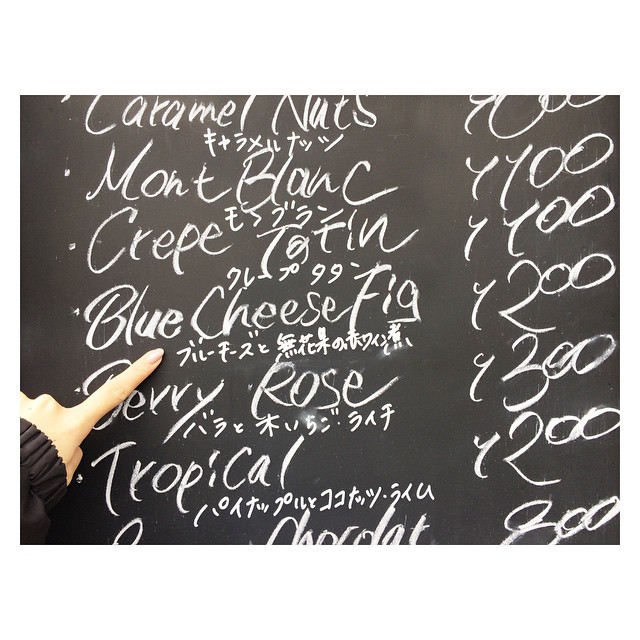 Caramel Nuts
キャラメルナッツ
Mont Blanc 1100
モンブラン
Crepe Tatin 1100
クレープタタン
Blue Cheese Fig 1200
ブルーチーズと無花果の赤ワイン煮
Berry Rose 1300
バラと木いちご・ライチ
Tropical 1200
パイナップルとココナッツ・ライム
Chocolat